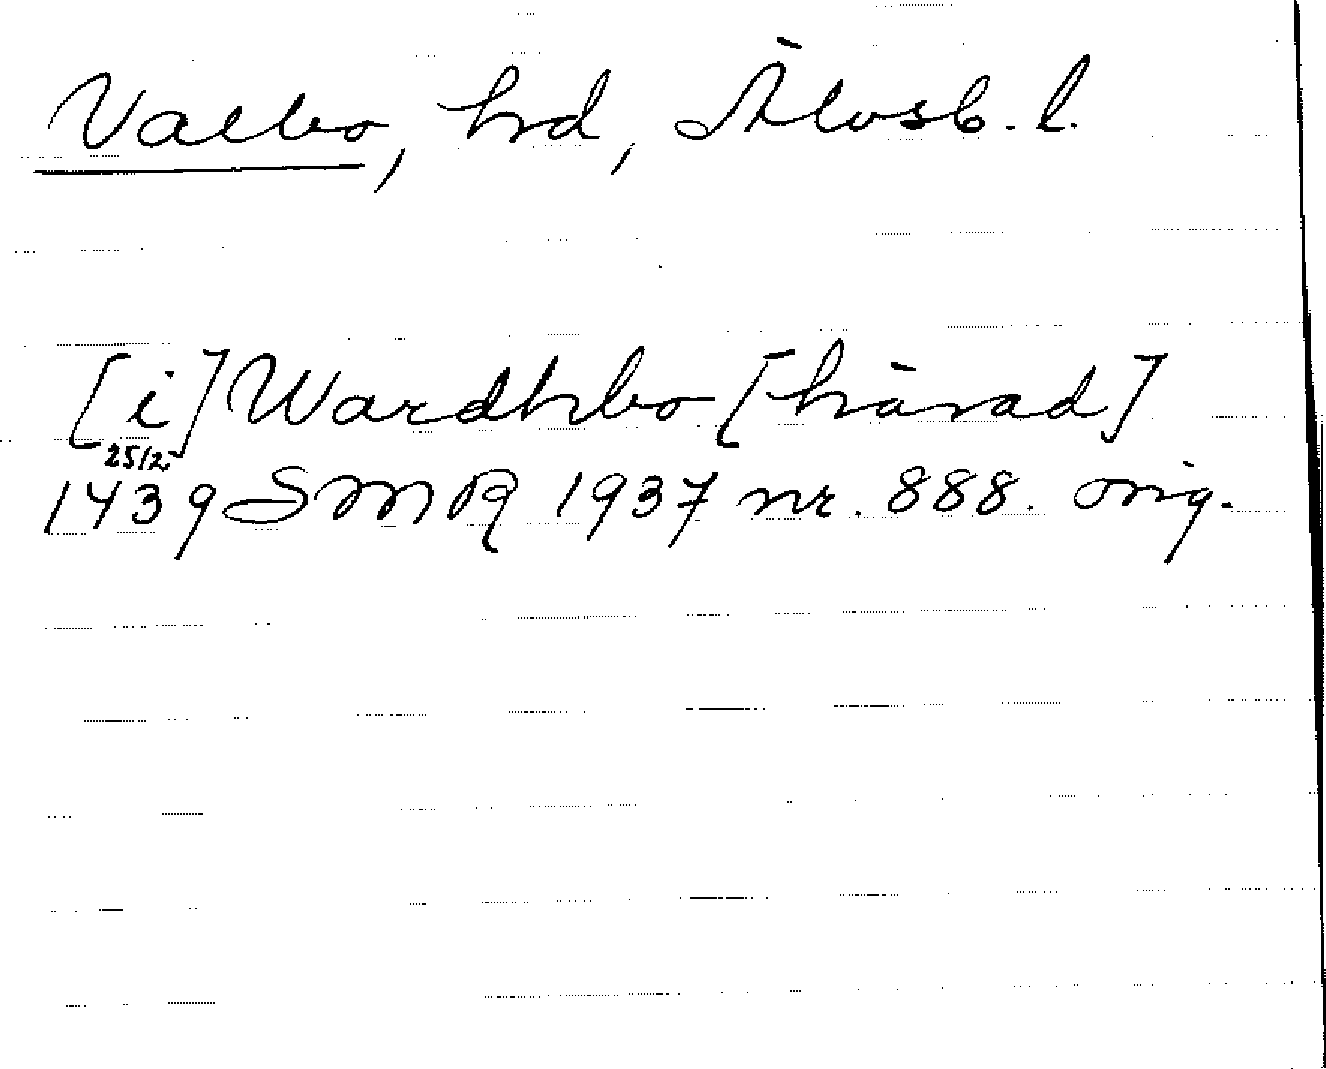 Valbo, hrd, Älvsb. l.
[i] Wardhbo [härad]
25/2
1439 SMR 1937 nr. 888. orig.